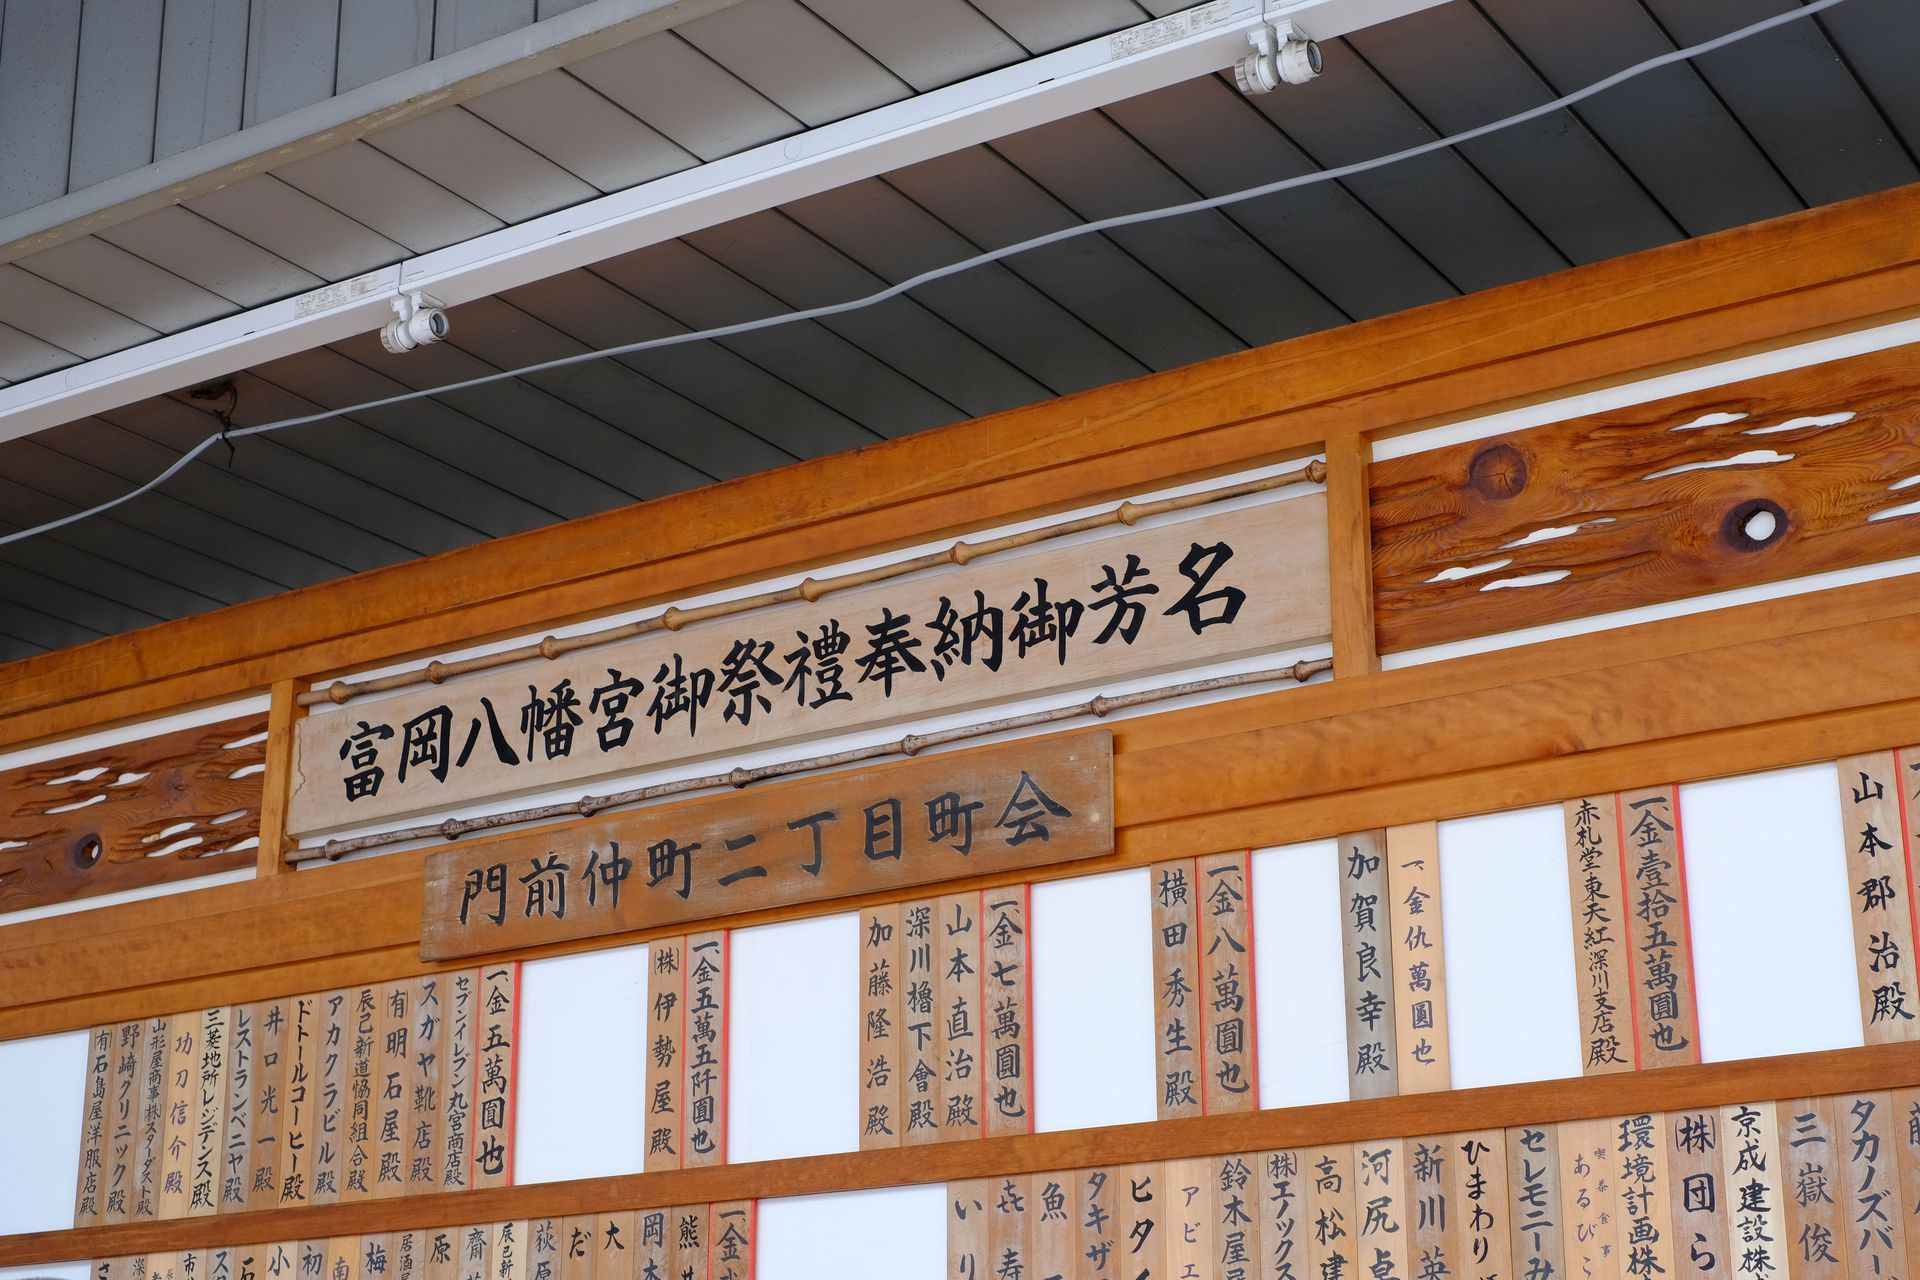 富岡八幡宮御祭禮奉納御芳名
門前仲町二丁目町会
山本郡治殿
一、金壹拾五萬圓也
赤札堂・東天紅深川支店殿
一、金仇萬圓也
加賀良幸殿
一、金八萬圓也
横田秀生殿
一、金七萬圓也
山本直治殿
深川櫓下會殿
加藤隆浩殿
一、金五萬五阡圓也
㈱伊勢屋殿
一、金五萬圓也
セブンイレブン丸宮商店殿
スガヤ靴店殿
㈲明石屋殿
辰巳新道協同組合殿
アカクラビル殿
ドトールコーヒー殿
井口光一殿
レストランベニヤ殿
三菱地所レジデンス殿
功刀信介殿
山形屋商事㈱スターダスト殿
野崎クリニック殿
㈲石島屋洋服店殿
タカノズバー
三嶽俊
京成建設株
㈱団ら
環境計画株
喫茶食事
あるびこ
セレモニーみ
ひまわり
新川英
河尻卓
高松建
㈱エノックス
鈴木屋
アビエ
ヒタイ
タキザ
魚
㐂寿
いり
一、金
熊井
岡本
大
だ
荻原
辰巳新
齋
原
居酒屋
梅
南
初
小
石